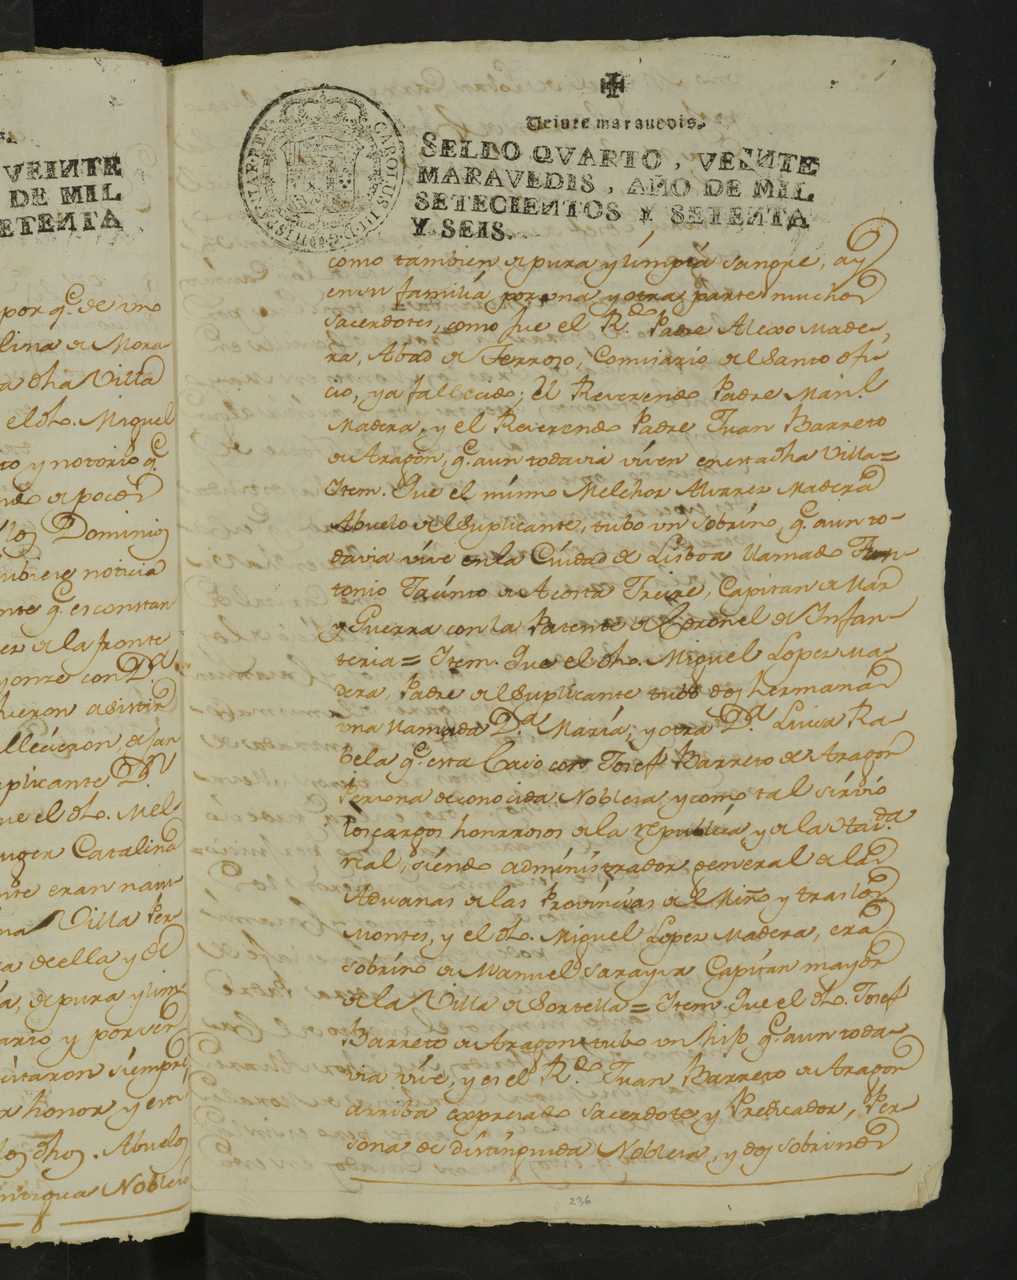 VEINTE
DE MIL
ETENTA
por q.e de uno
lina de Mora
a dha Villa
el dho. Miguel
to y notorio q.e
Dominios
noticia
q.e es constan
er de la fronte
con D.a
asistir
eplicante D.n
ue el dho. Mel-
uger Catalina
nte eran natu-
na Villa Per
ra de ella y de
a, de pura y lim-
ario y por ser
citaron siempre
r honor y
los dhos. Abuelos
ntigua Nobleza
✠
Veinte maravedis.
SELLO QVARTO, VEINTE
MARAVEDIS, AÑO DE MIL
SETECIENTOS Y SETENTA
Y SEIS.
CAROLUS III D G HISPANIAR REX
como tambien de pura y límpia sangre, ay
en su família por una y otra parte muchos
sacerdotes, como fue el R.do Padre Alexo Made-
ra, Abad de Ferrojo, Comisario del Santo ofi-
cio, ya fallecido; el Reverendo Padre Man.l
Madera, y el Reverendo Padre Juan Barreto
de Aragon, q.e aun todavia viven en esta dha Villa=
Item. Que el mismo Melchor Alvarez Madera
Abuelo del Suplicante, tubo un sobrino, q.e aun to-
davia vive en la Ciudad de Lisboa llamado
tonio Jacinto de Acosta Freire, Capitan de Mar
y Guerra con la Patente de Coronel de Infan-
teria = Item. Que el dho. Miguel Lopez Ma-
dera, Padre del Suplicante tubo dos hermanas
una llamada D.a María, y otra D.a Luisa Ra-
bela q.e esta Casó con Josef Barreto de Aragon
Persona de conocida Nobleza, y como tal sirvió
los cargos honrrosos de la republica, y de la
Real, siendo administrador general de las
Aduanas de las Provincias del Miño y traslos
Montes, y el dho. Miguel Lopez Madera, era
sobrino de Manuel Sarayva Capitan mayor
de la Villa de Sortella = Item. Que el dho. Josef
Barreto de Aragon tubo un hijo q.e aun toda-
via vive, y es el R.do Juan Barreto de Aragon
arriba expresado sacerdote y Predicador, Per-
sona de distinguida Nobleza, y dos sobrinos
236